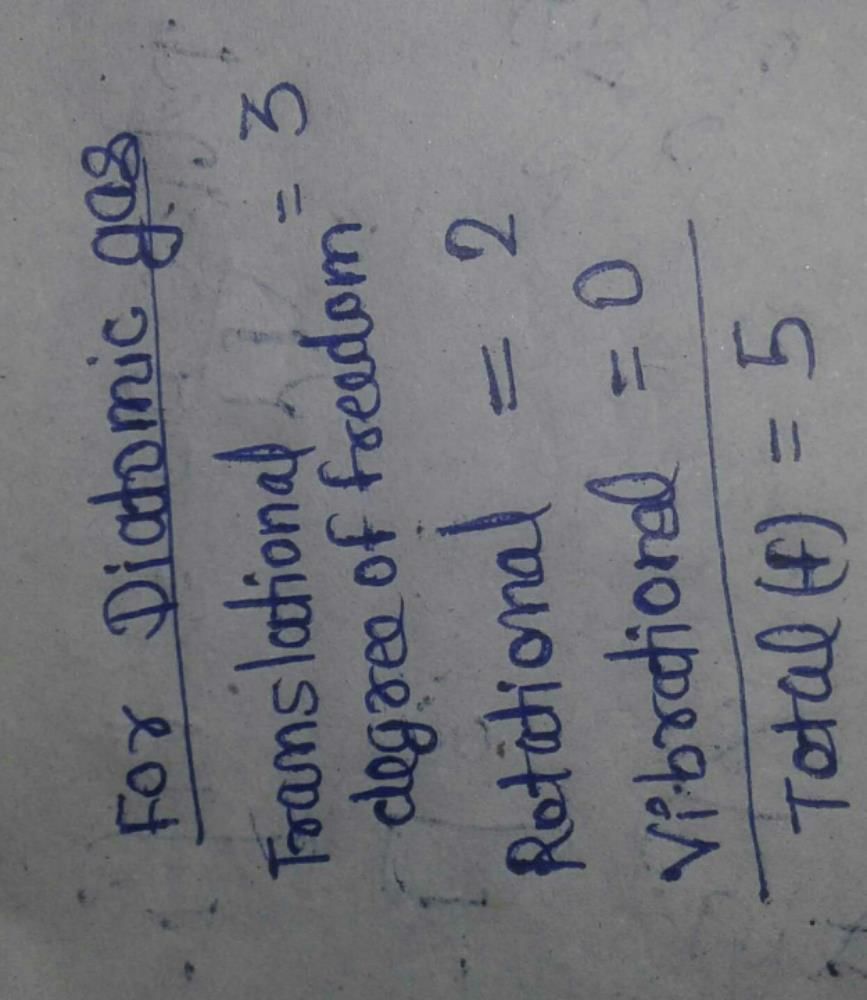 For Diatomic gas
Translational = 3
degree of freedom
Rotational = 2
Vibrational = 0
Total (f) = 5